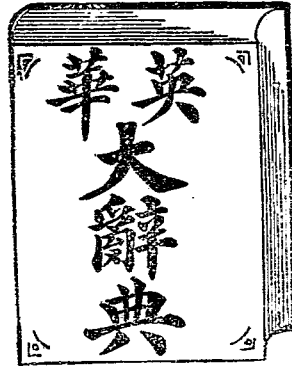 英華
大辭典